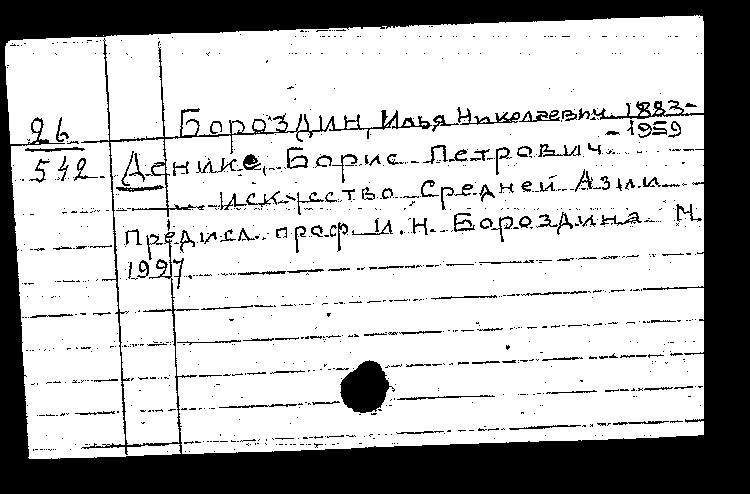 26
542
Бороздин, Илья Николаевич. 1883-
- 1959
Денике, Борис Петрович.
... Искусство Средней Азии
Предисл. проф. И. Н. Бороздина М.
1927.